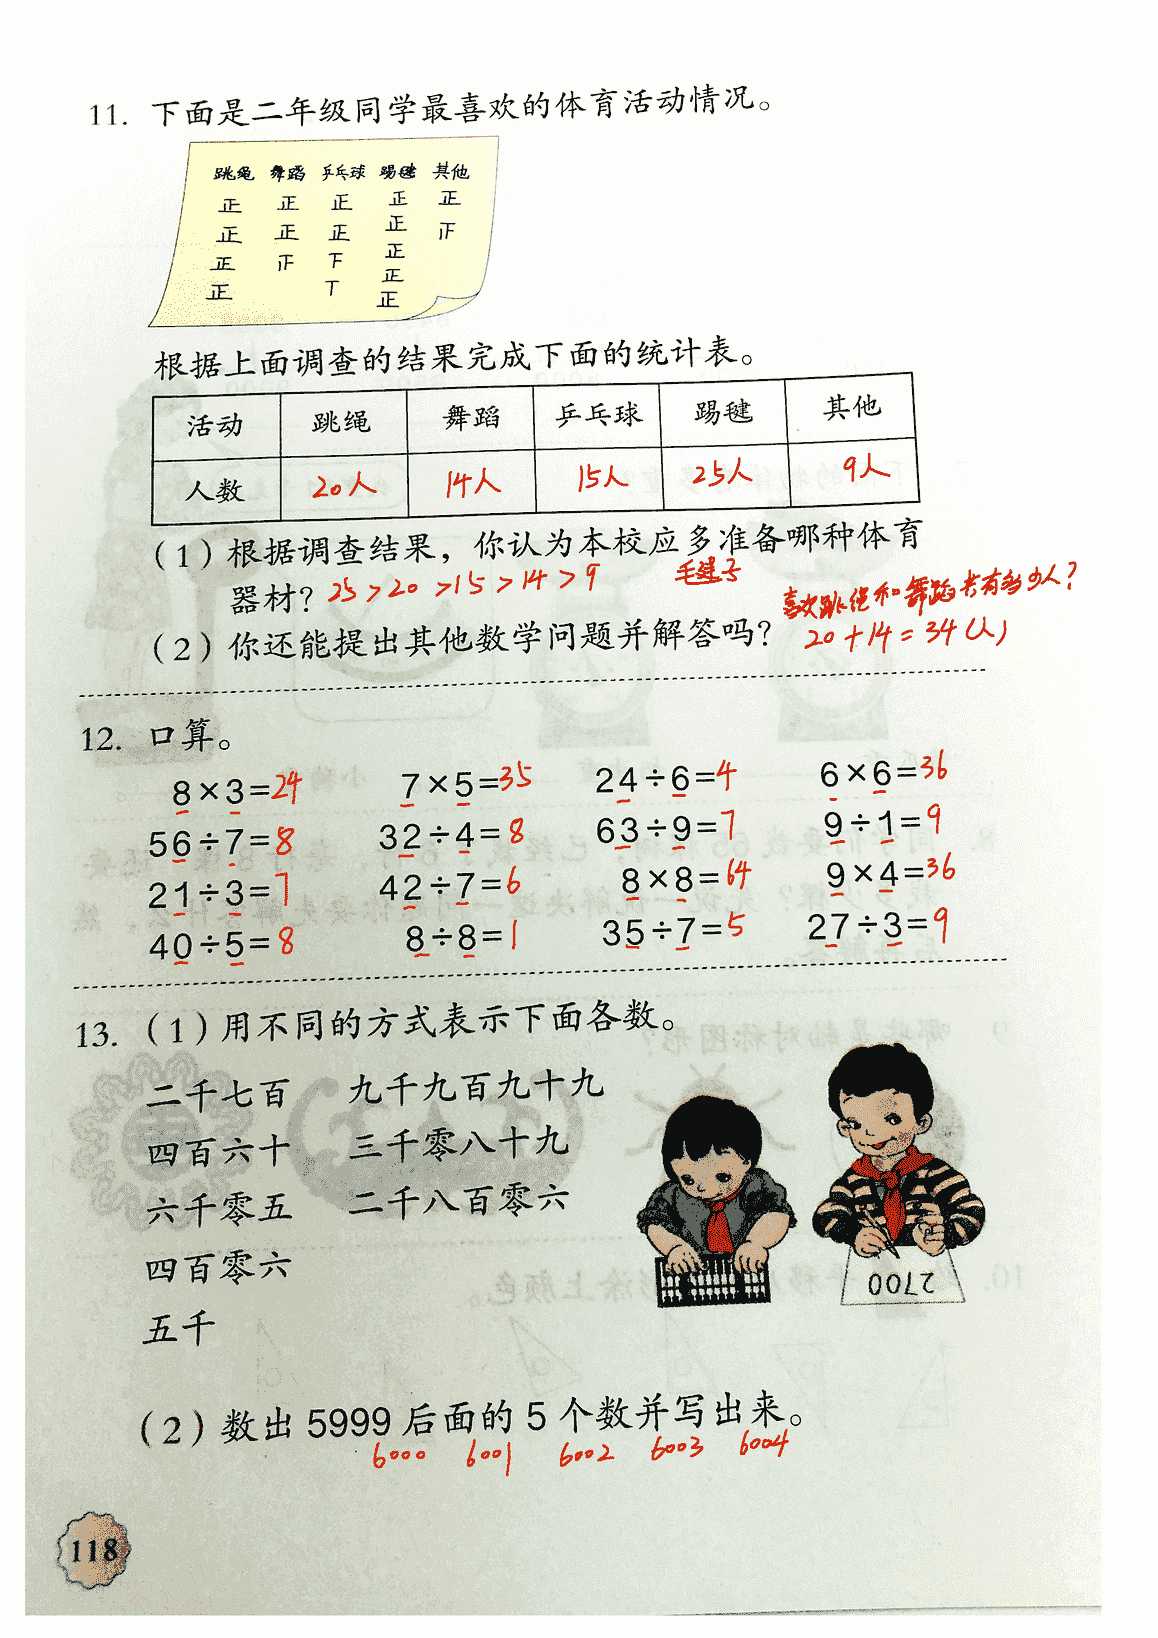 11. 下面是二年级同学最喜欢的体育活动情况。
跳绳 舞蹈 乒乓球 踢毽 其他
正 正 正 正 正
正 正 正 正
正 正
正 正
正
根据上面调查的结果完成下面的统计表。
活动 跳绳 舞蹈 乒乓球 踢毽 其他
人数 20人 14人 15人 25人 9人
(1) 根据调查结果，你认为本校应多准备哪种体育
器材? 25>20>15>14>9 毛建子
喜欢跳绳和舞蹈共有多少人?
(2) 你还能提出其他数学问题并解答吗? 20+14=34(人)
12. 口算。
8×3=24 7×5=35 24÷6=4 6×6=36
56÷7=8 32÷4=8 63÷9=7 9÷1=9
21÷3=7 42÷7=6 8×8=64 9×4=36
40÷5=8 8÷8=1 35÷7=5 27÷3=9
13. (1) 用不同的方式表示下面各数。
二千七百 九千九百九十九
四百六十 三千零八十九
六千零五 二千八百零六
四百零六
五千
2700
(2) 数出 5999 后面的 5 个数并写出来。
6000 6001 6002 6003 6004
118